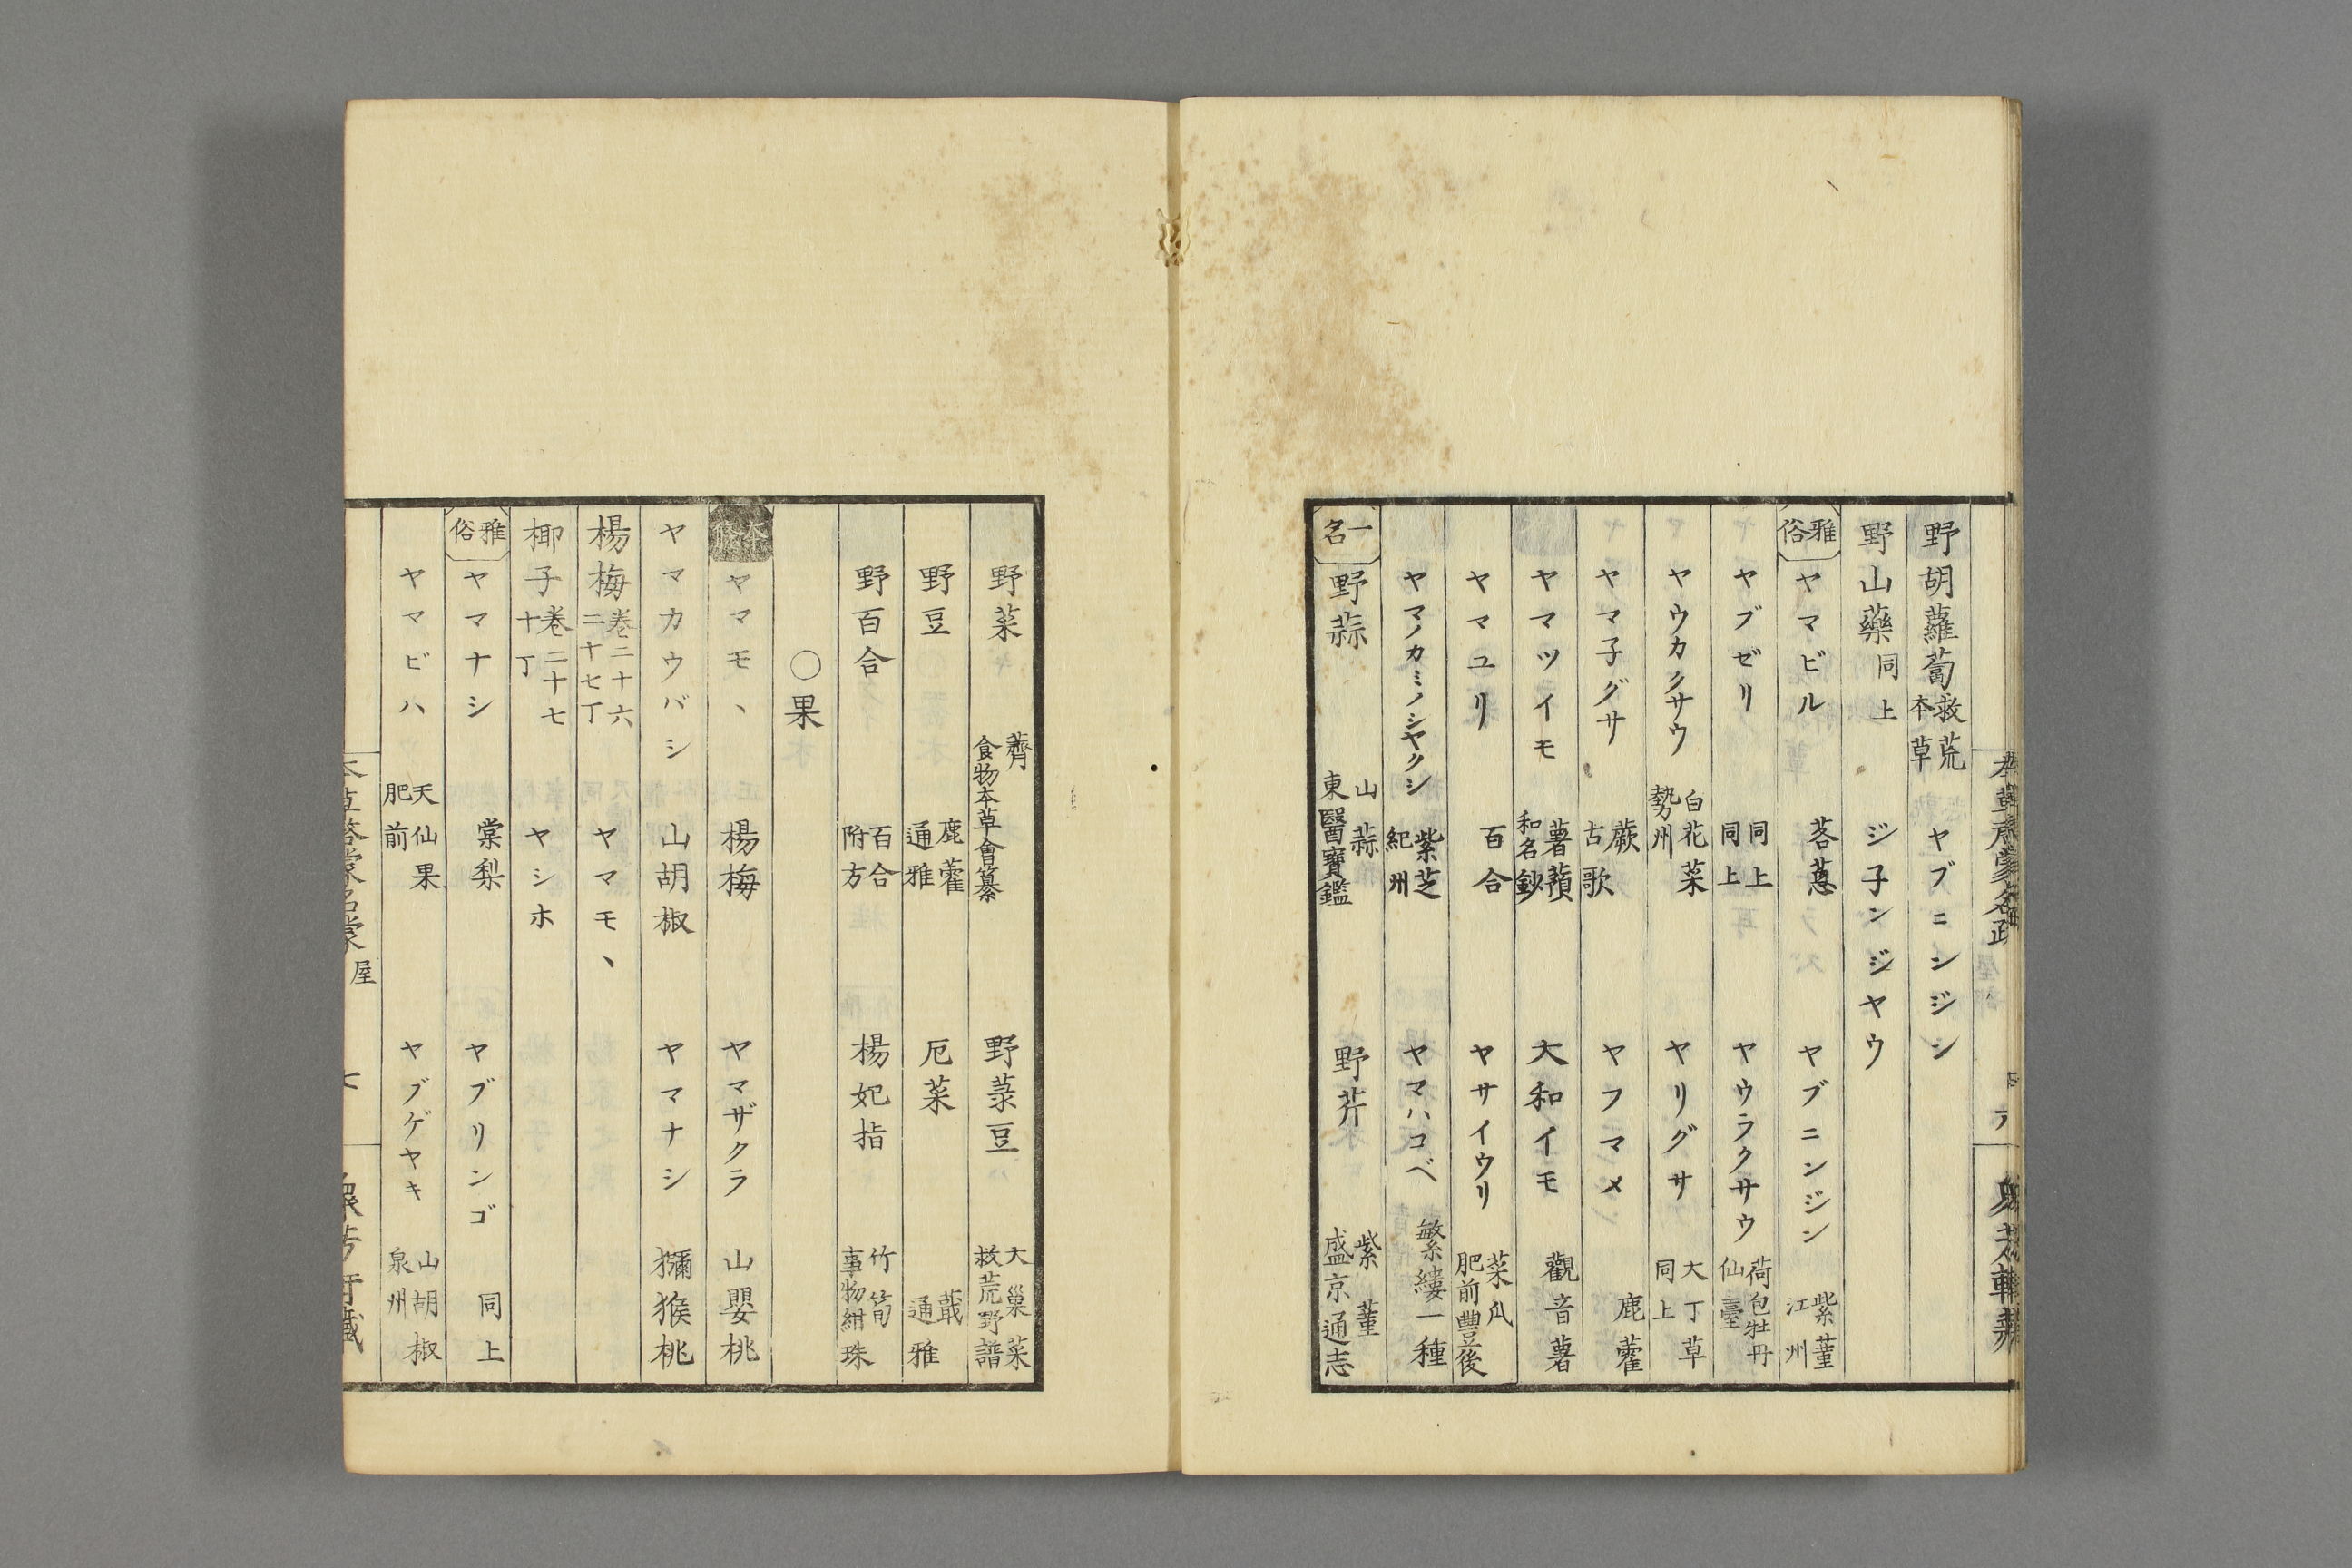 野胡蘿蔔 救荒本草 ヤブニンジン
野山藥 同上 ジ子ンジヤウ
雅俗 ヤマビル 茖葱 ヤブニンジン 紫菫 江州
ヤブゼリ 同上 同上 ヤウラクサウ 荷包牡丹 仙臺
ヤウカクサウ 白花菜 勢州 ヤリグサ 大丁草 同上
ヤマ子グサ 蕨 古歌 ヤフマメ 鹿藿
ヤマツイモ 薯蕷 和名鈔 大和イモ 觀音薯
ヤマユリ 百合 ヤサイウリ 菜瓜 肥前豐後
ヤマノカミノシヤクシ 紫芝 紀州 ヤマハコベ 繁縷一種
一名 野蒜 山蒜 東醫寶鑑 野芥 紫菫 盛京通志
野菜 薺 食物本草會纂 野菉豆 大巢菜 救荒野譜
野豆 鹿藿 通雅 厄菜 蕺 通雅
野百合 百合 附方 楊妃指 竹筍 事物紺珠
〇果
ヤマモヽ 楊梅 ヤマザクラ 山嬰桃
ヤマカウバシ 山胡椒 ヤマナシ 獼猴桃
楊梅 卷二十六 二十七丁 ヤマモヽ
椰子 卷二十七 十丁 ヤシホ
雅俗 ヤマナシ 棠梨 ヤブリンゴ 同上
ヤマビハ 天仙果 肥前 ヤブゲヤキ 山胡椒 泉州
屋